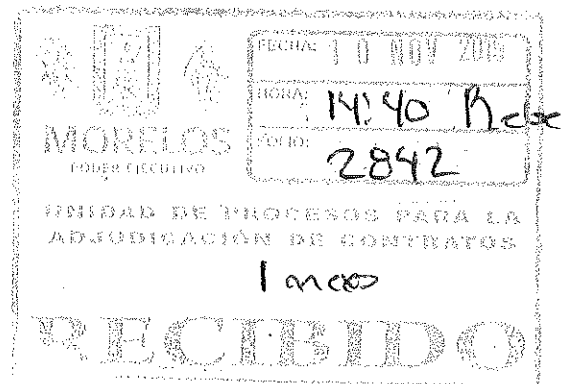 FECHA: 10 NOV
HORA: 14:40
FOLIO: 2842
MORELOS
PODER EJECUTIVO
UNIDAD DE PROCESOS PARA LA
ADJUDICACIÓN DE CONTRATOS
RECIBIDO